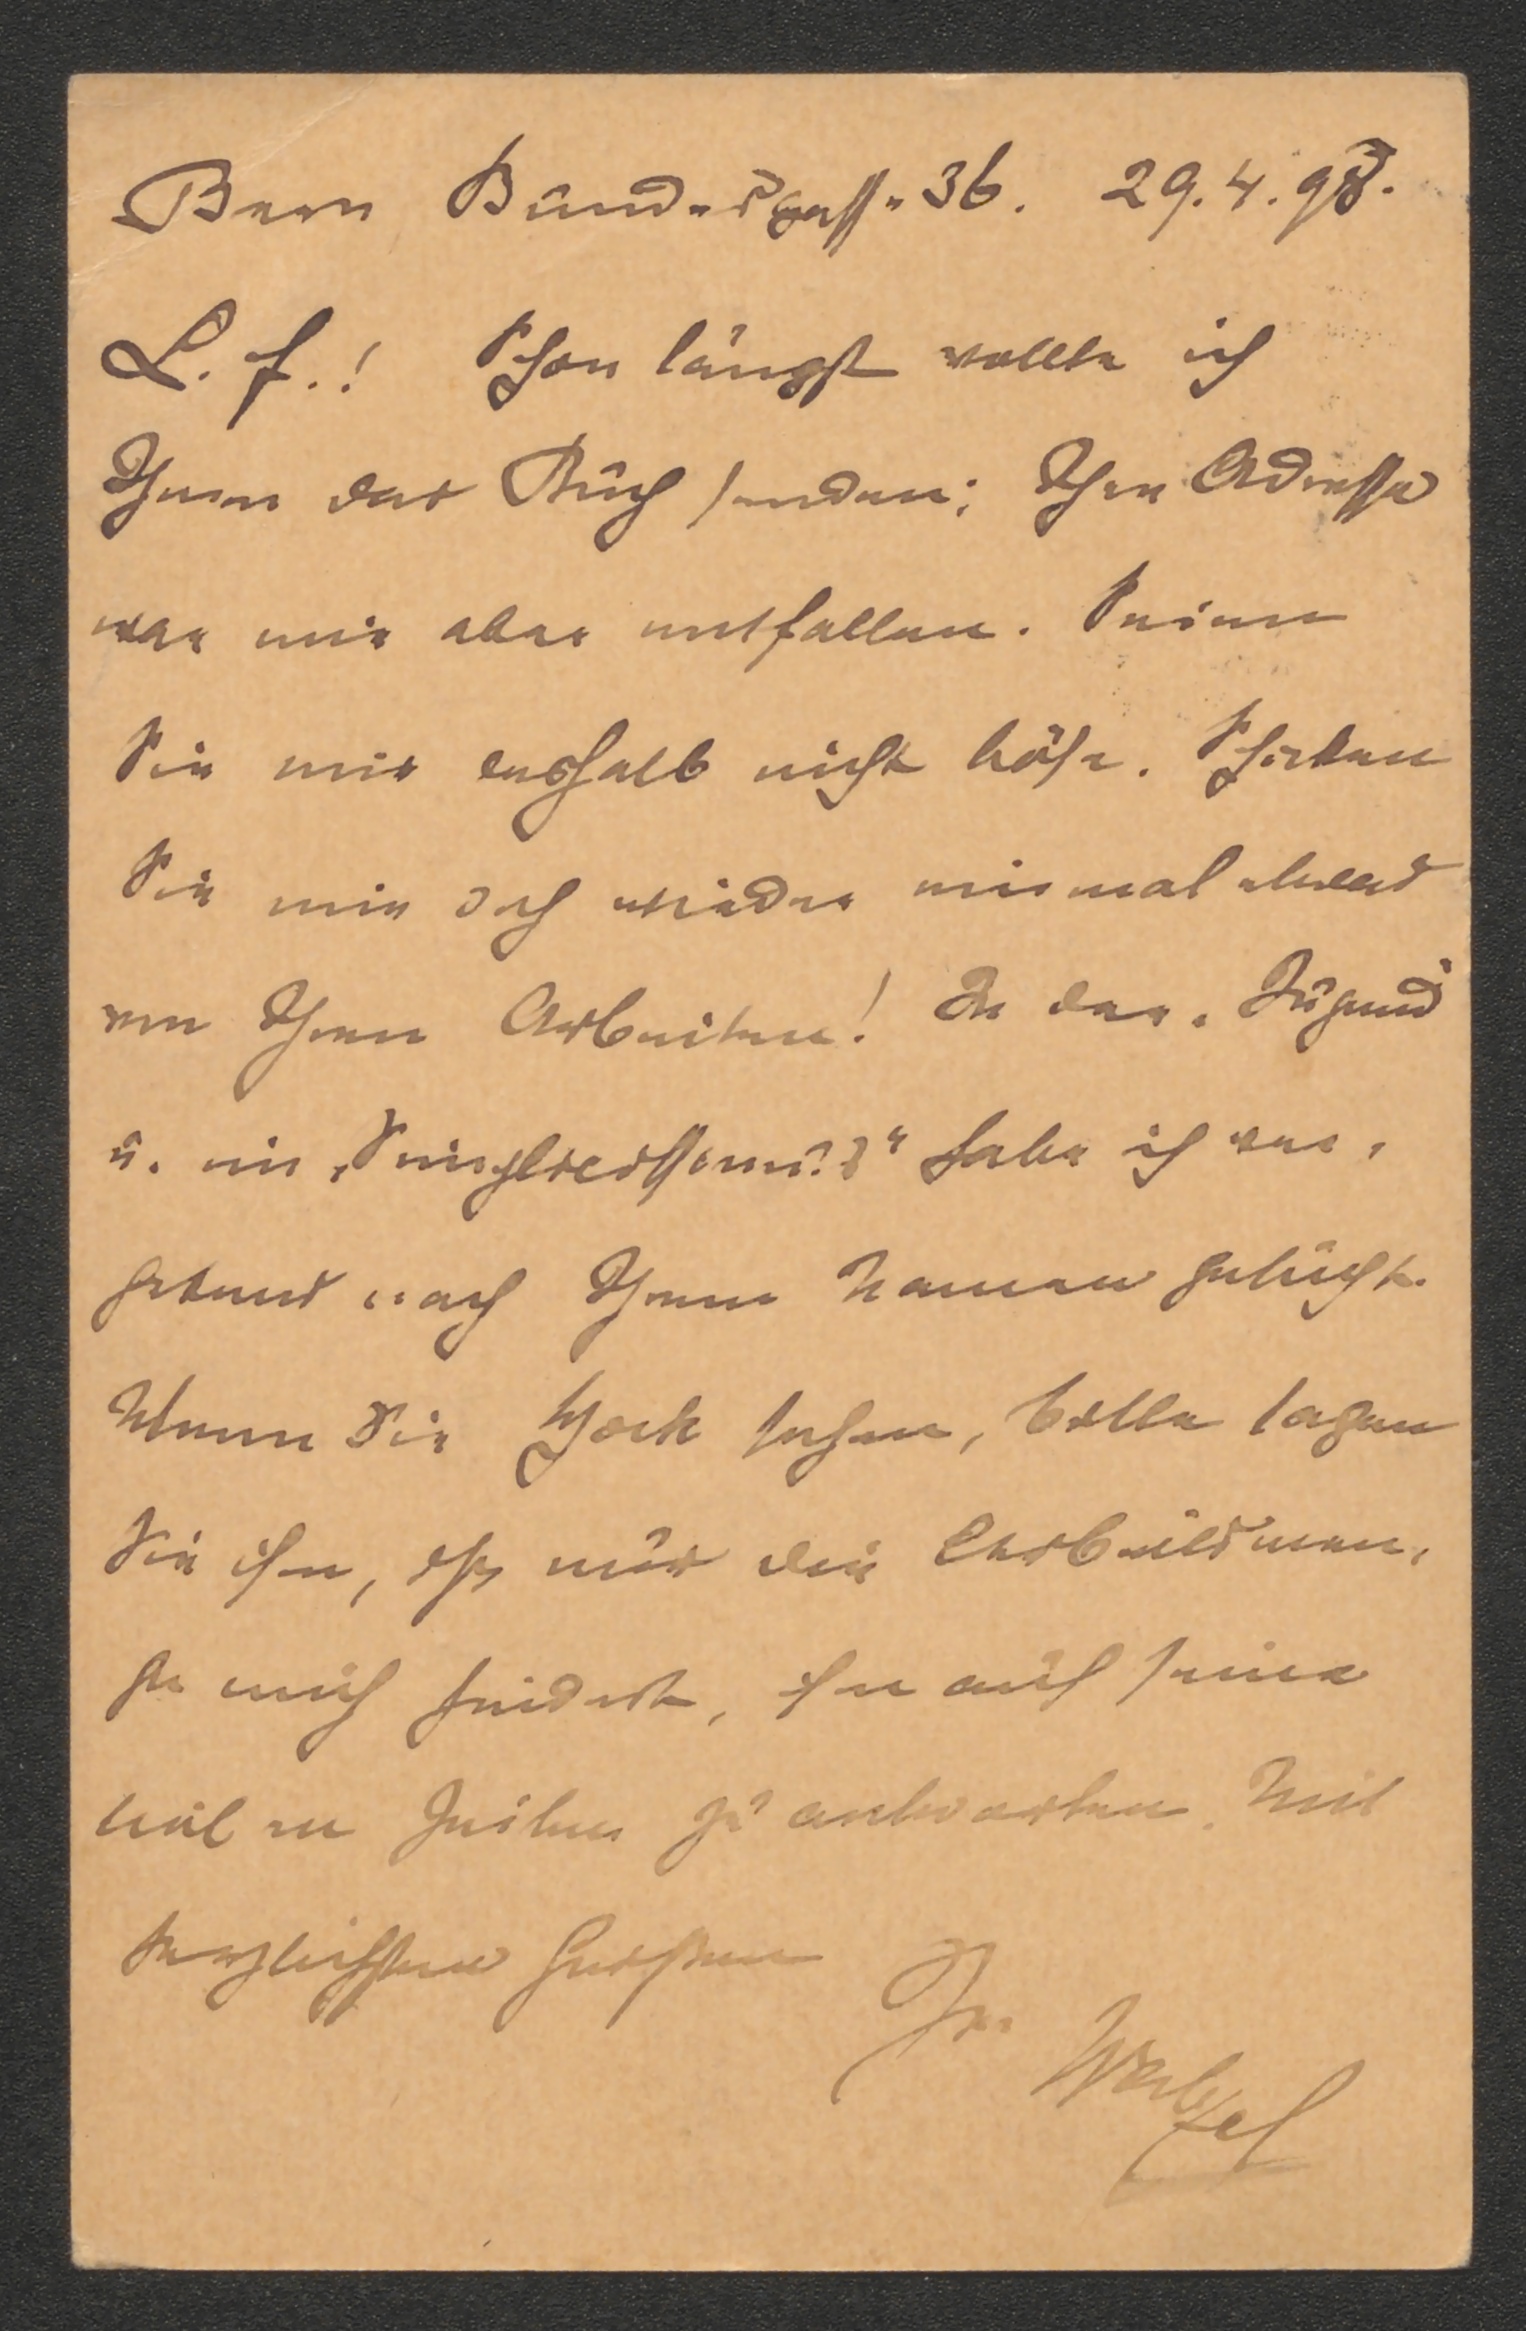 Bern Bundesgasse 36. 29.4.98.
L. f.! Schon längst wollte ich
Ihnen das Buch senden; Ihre Adresse
war mir aber entfallen. Seien
Sie mir deshalb nicht böse. Schicken
Sie mir doch wieder einmal etwas
von Ihren Arbeiten! In der „Jugend"
u. im „Simplicissimus" habe ich ver-
gebens nach Ihrem Namen gesucht.
Wenn Sie York sehen, bitte sagen
Sie ihm, daß nur die Arbeitsmen-
ge mich hindert, ihm auf seine
lieben Zeilen zu antworten. Mit
herzlichsten Grüßen
Ihr